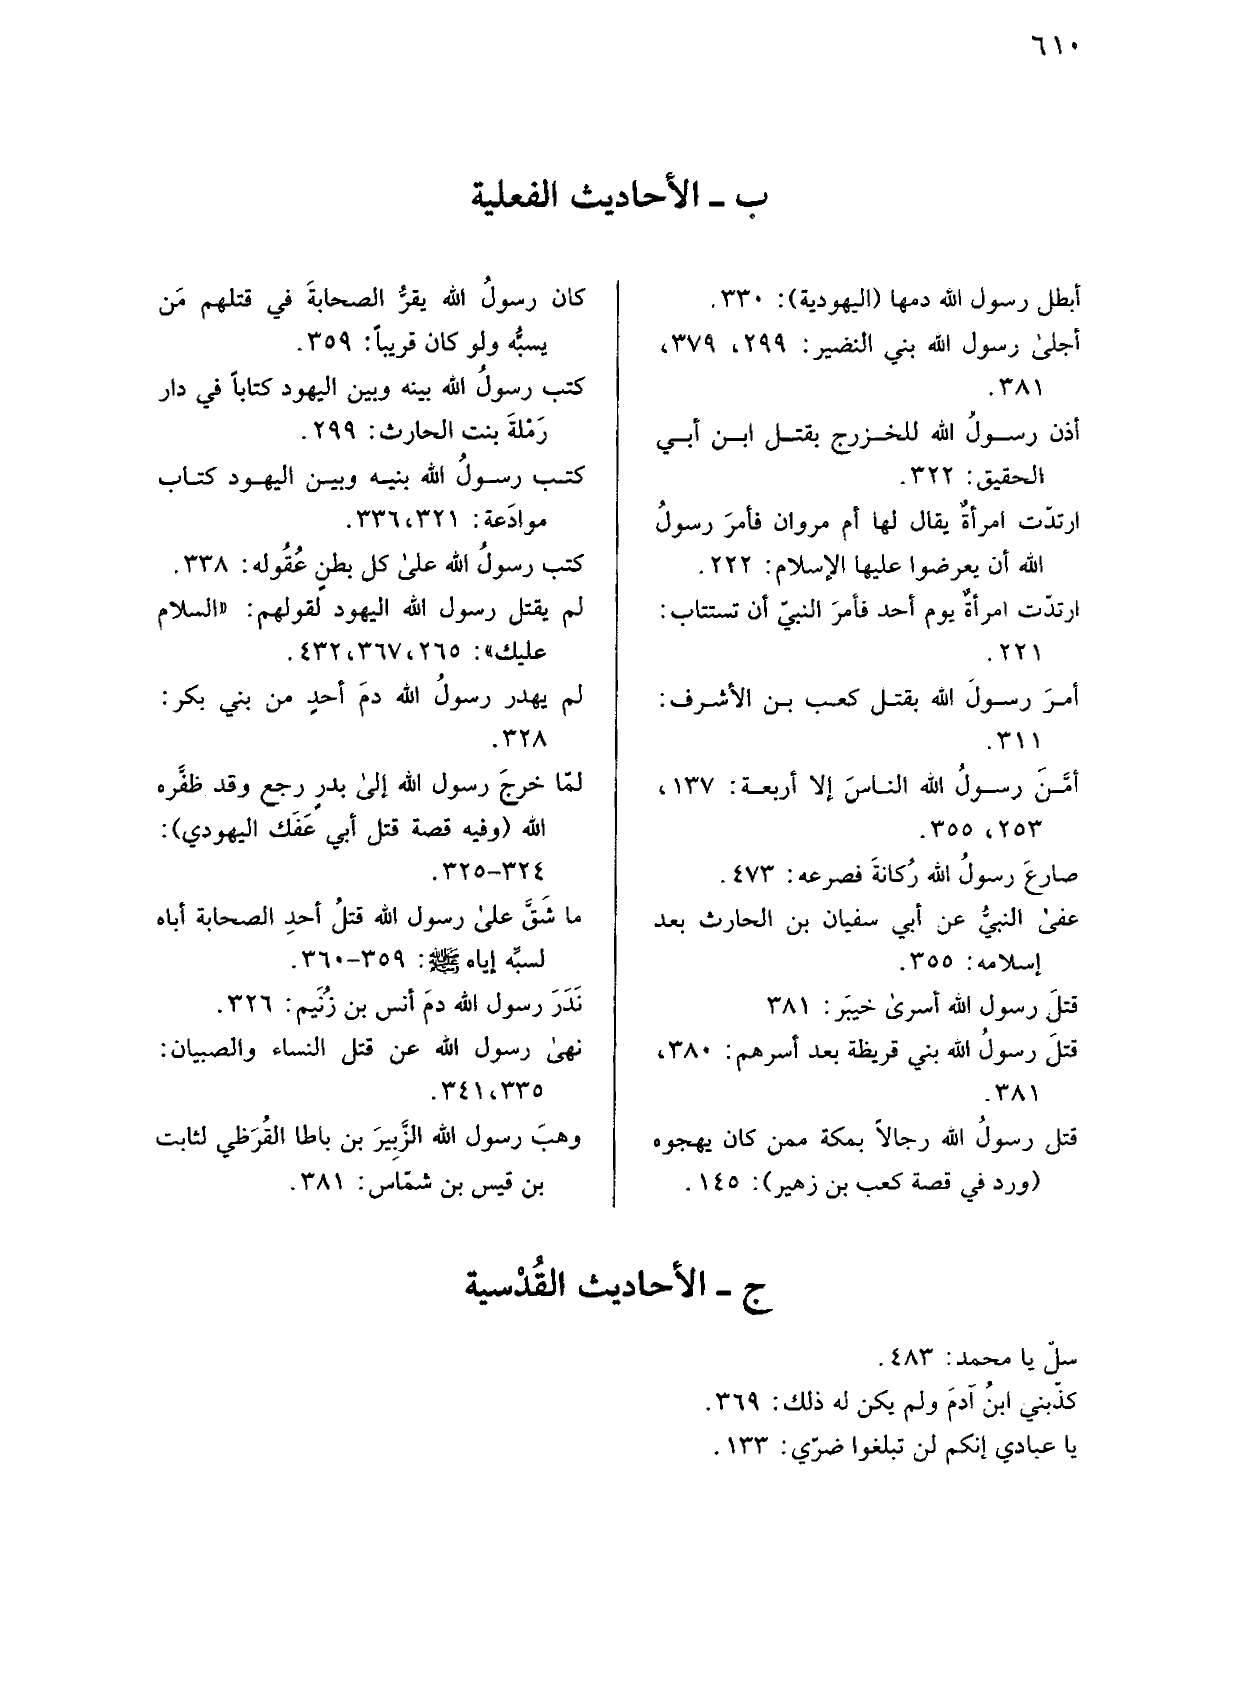 ٦١٠
ب ـ الأحاديث الفعلية
أبطل رسول الله دمها (اليهودية): ٣٣٠.
أجلىٰ رسول الله بني النضير: ٢٩٩، ٣٧٩،
٣٨١.
أذن رسولُ الله للخزرج بقتل ابن أبي
الحقيق: ٣٢٢.
ارتدّت امرأةٌ يقال لها أم مروان فأمرَ رسولُ
الله أن يعرضوا عليها الإسلام: ٢٢٢.
ارتدّت امرأةٌ يوم أحد فأمرَ النبيّ أن تستتاب:
٢٢١.
أمرَ رسولَ الله بقتل كعب بن الأشرف:
٣١١.
أمَّنَ رسولُ الله الناسَ إلا أربعة: ١٣٧،
٢٥٣، ٣٥٥.
صارعَ رسولُ الله رُكانةَ فصرعه: ٤٧٣.
عفىٰ النبيُّ عن أبي سفيان بن الحارث بعد
إسلامه: ٣٥٥.
قتلَ رسول الله أسرىٰ خيبَر: ٣٨١
قتلَ رسولُ الله بني قريظة بعد أسرهم: ٣٨٠،
٣٨١.
قتل رسولُ الله رجالاً بمكة ممن كان يهجوه
(ورد في قصة كعب بن زهير): ١٤٥.
كان رسولُ الله يقرُّ الصحابةَ في قتلهم مَن
يسبُّه ولو كان قريباً: ٣٥٩.
كتب رسولُ الله بينه وبين اليهود كتاباً في دار
رَمْلةَ بنت الحارث: ٢٩٩.
كتب رسولُ الله بنيه وبين اليهود كتاب
موادَعة: ٣٢١، ٣٣٦.
كتب رسولُ الله علىٰ كل بطنٍ عُقُوله: ٣٣٨.
لم يقتل رسول الله اليهود لقولهم: «السلام
عليك»: ٢٦٥، ٣٦٧، ٤٣٢.
لم يهدر رسولُ الله دمَ أحدٍ من بني بكر:
٣٢٨.
لمّا خرجَ رسول الله إلىٰ بدرٍ رجع وقد ظفَّره
الله (وفيه قصة قتل أبي عَفَك اليهودي):
٣٢٤-٣٢٥.
ما شَقَّ علىٰ رسول الله قتلُ أحدِ الصحابة أباه
لسبِّه إياه ﷺ: ٣٥٩-٣٦٠.
نَدَرَ رسول الله دمَ أنس بن زُنَيم: ٣٢٦.
نهىٰ رسول الله عن قتل النساء والصبيان:
٣٣٥، ٣٤١.
وهبَ رسول الله الزَّبِيرَ بن باطا القُرَظي لثابت
بن قيس بن شمّاس: ٣٨١.
ج ـ الأحاديث القُدْسية
سلّ يا محمد: ٤٨٣.
كذّبني ابنُ آدمَ ولم يكن له ذلك: ٣٦٩.
يا عبادي إنكم لن تبلغوا ضرّي: ١٣٣.